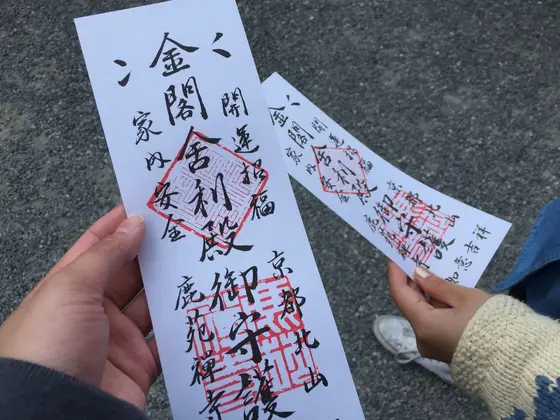 金閣舎利殿御守護
開運招福
家内安全
京都北山
鹿苑禅寺
金閣舎利殿御守護
開運招福
家内安全
京都北山
鹿苑禅寺
如意吉祥